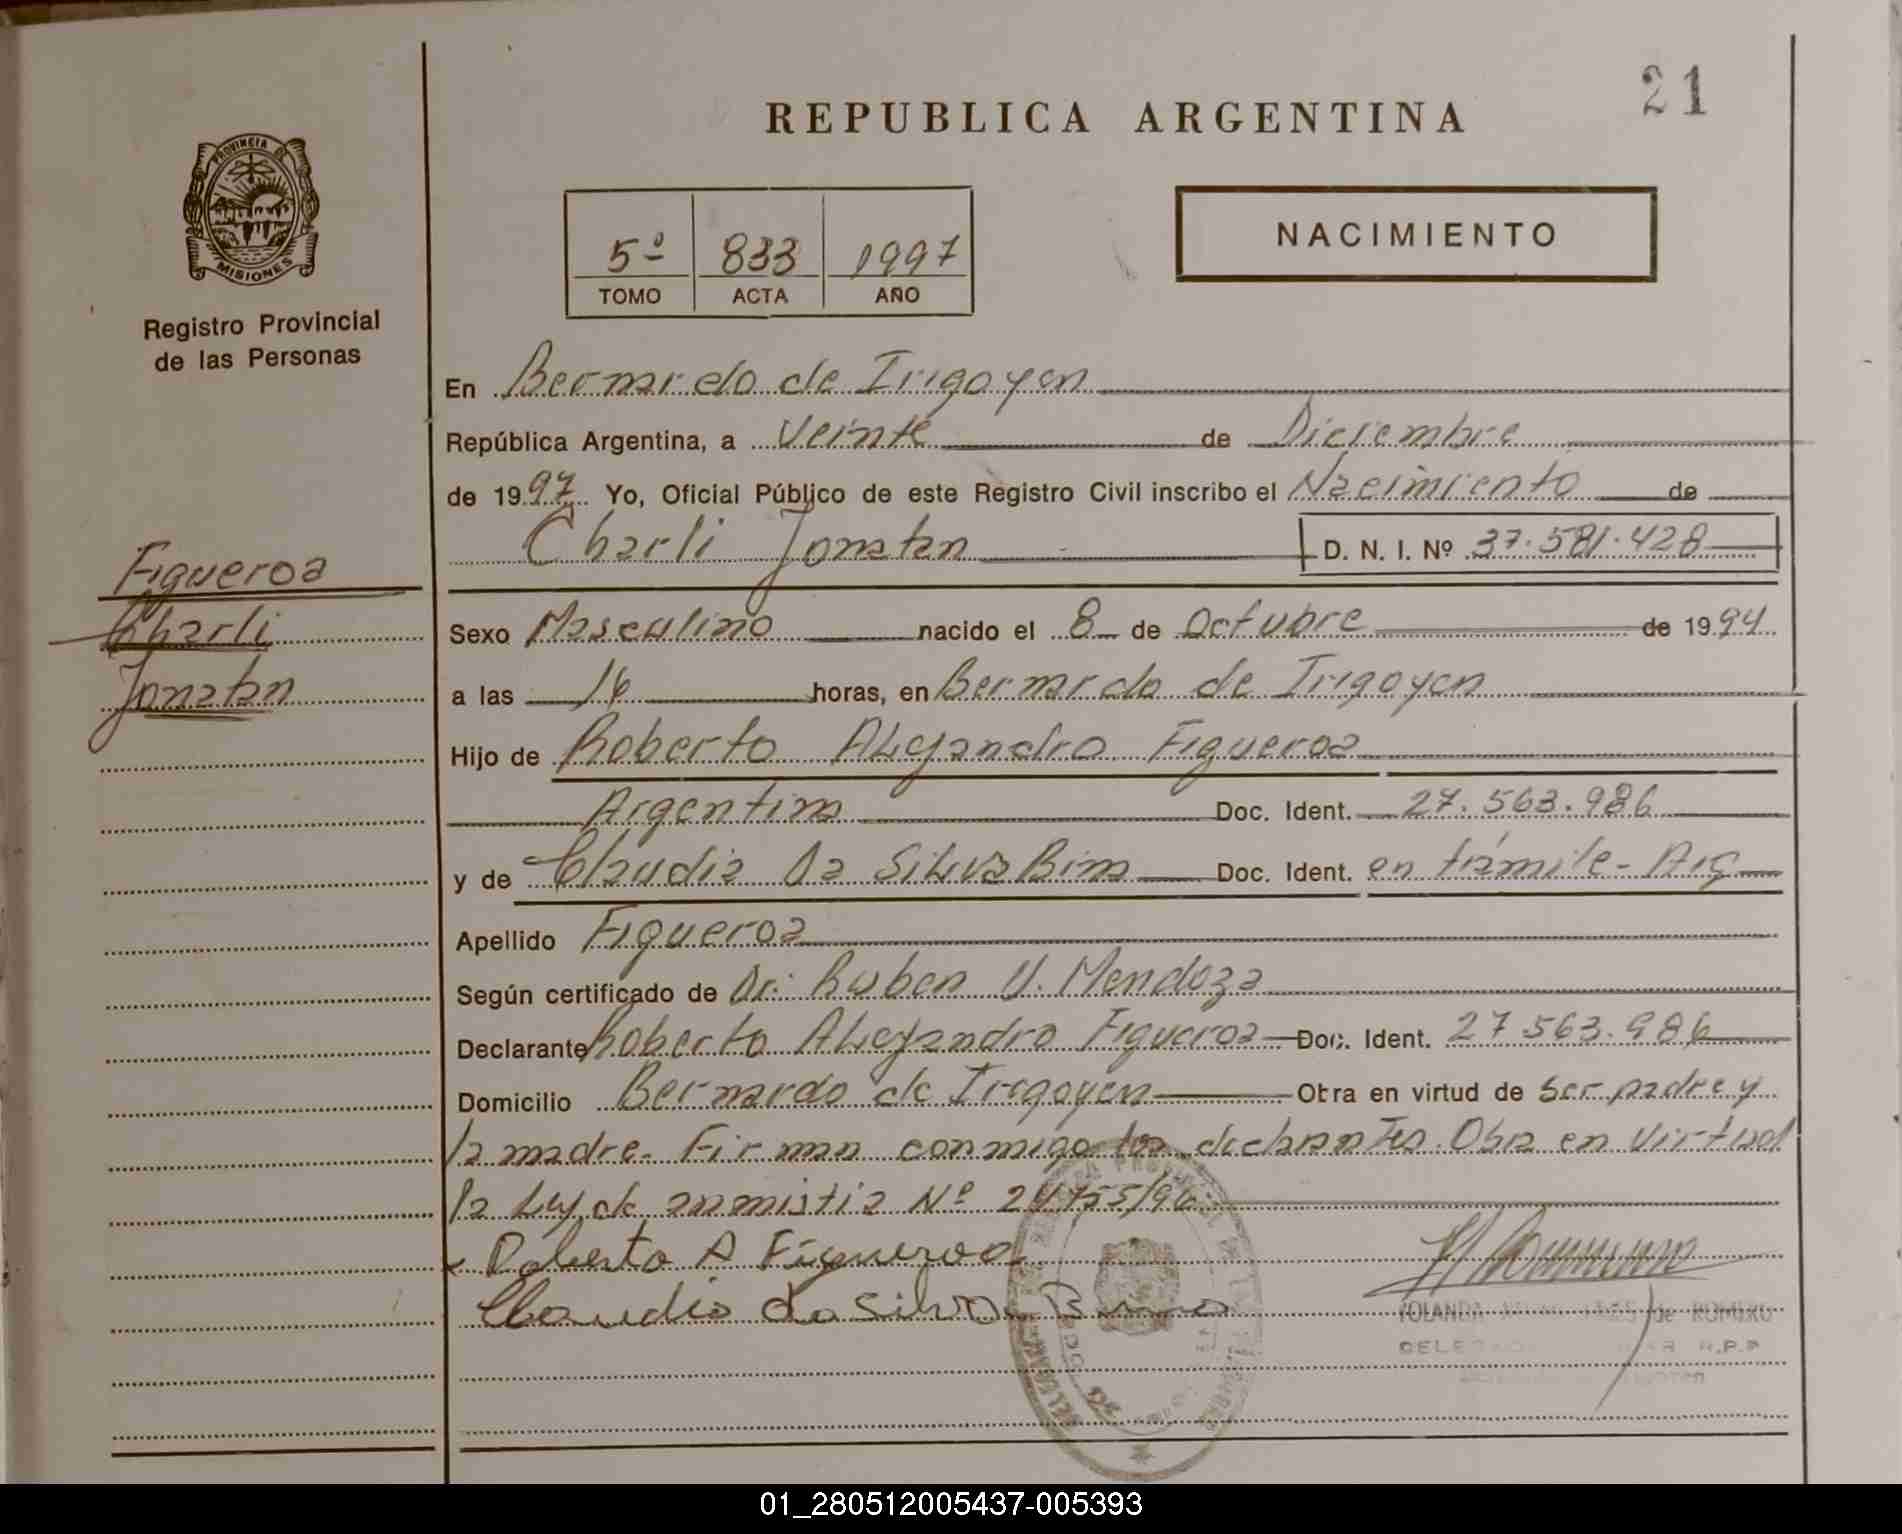 21
REPUBLICA ARGENTINA
PROVINCIA DE
MISIONES
Registro Provincial
de las Personas
5º 833 1997
TOMO ACTA AÑO
NACIMIENTO
En Bernardo de Irigoyen
República Argentina, a Veinte de Diciembre
de 1997 Yo, Oficial Público de este Registro Civil inscribo el Nacimiento de
Charli Jonatan D. N. I. Nº 37.581.428
Figueroa
Charli
Jonatan
Sexo Masculino nacido el 8 de Octubre de 1994
a las 16 horas, en Bernardo de Irigoyen
Hijo de Roberto Alejandro Figueroa
Argentina Doc. Ident. 27.563.986
y de Claudia Da Silva Bina Doc. Ident. en trámite - Arg
Apellido Figueroa
Según certificado de Dr. Ruben V. Mendoza
Declarante Roberto Alejandro Figueroa Doc. Ident. 27.563.986
Domicilio Bernardo de Irigoyen Obra en virtud de ser padre y
la madre. Firman conmigo los declarantes. Obra en virtud
la Ley de anmistia Nº 24.755/96
Roberto A Figueroa
Claudia da Silva Bina
YOLANDA de ROMERO
R.P.P
01_280512005437-005393